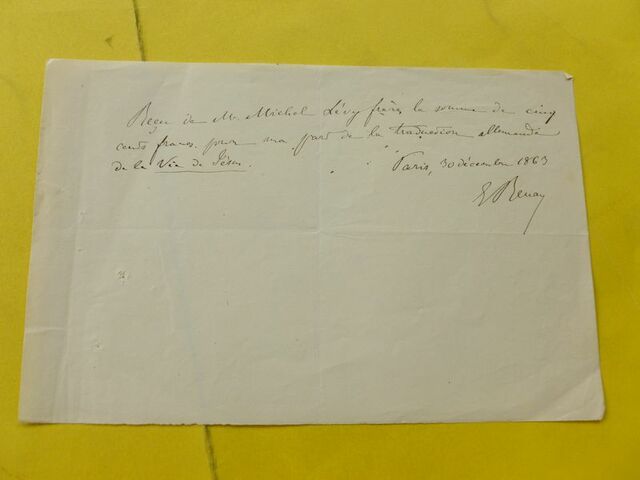 Reçu de Mr Michel Lévy frères la somme de cinq
cents francs pour ma part de la traduction allemande
de la Vie de Jésus.
Paris, 30 décembre 1863
E Renan